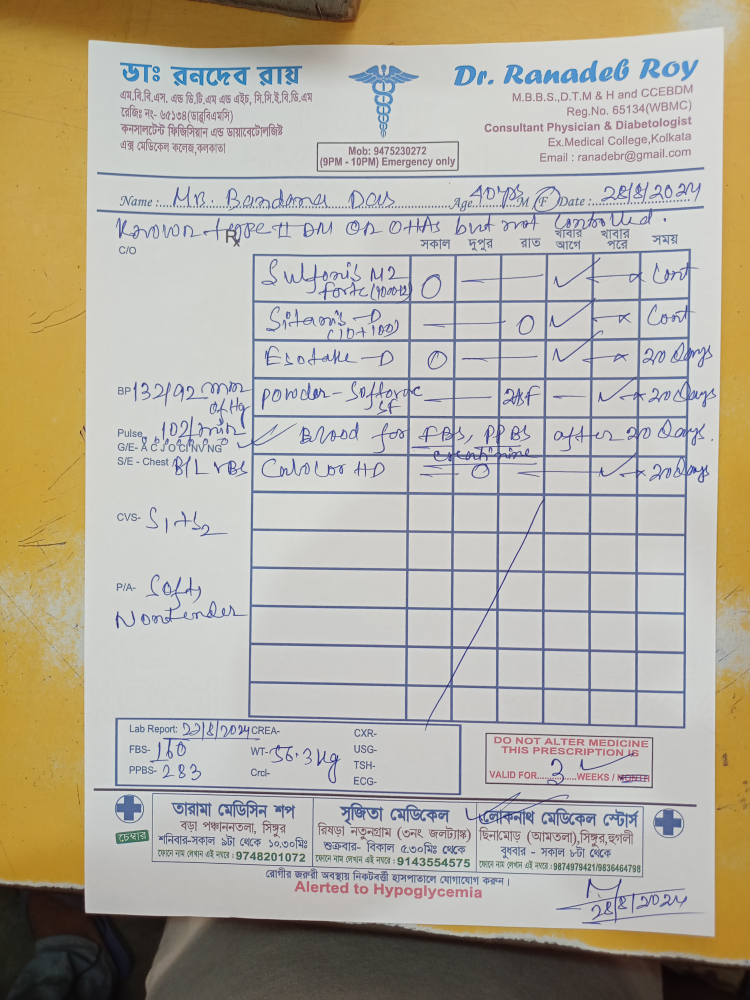 ডাঃ রনদেব রায়
এম.বি.বি.এস. এন্ড ডি.টি.এম এন্ড এইচ, সি.সি.ই.বি.ডি.এম
রেজিঃ নং- ৬৫১৩৪(ডাব্লুবিএমসি)
কনসালটেন্ট ফিজিসিয়ান এন্ড ডায়াবেটোলজিষ্ট
এক্স মেডিকেল কলেজ,কলকাতা
Mob: 9475230272
(9PM - 10PM) Emergency only
Dr. Ranadeb Roy
M.B.B.S.,D.T.M & H and CCEBDM
Reg.No. 65134(WBMC)
Consultant Physician & Diabetologist
Ex.Medical College,Kolkata
Email : ranadebr@gmail.com
Name : Bandana Das Age 40yrs M / F Date : 28/8/2024
Known type II DM on OHAs but not controlled.
C/O
Rx
সকাল দুপুর রাত খাবার আগে খাবার পরে সময়
M2 forte Cont
D (10+100) Cont
D 20 Days
BP 132/92 mm of Hg
Powder - SF 20 Days
Pulse 102/min
Blood for FBS, PPBS after 20 Days.
creatinine
G/E- A C J O Cl NV NG
S/E - Chest B/L VBS
HD 20 Days
CVS- S1+S2
P/A- Soft, Nontender
Lab Report: 22/8/2024 CREA- CXR-
FBS- 160 WT- 56.3 Kg USG-
PPBS- 283 Crcl- TSH-
ECG-
DO NOT ALTER MEDICINE
THIS PRESCRIPTION IS
VALID FOR 3 WEEKS / MONTH
চেম্বার
তারামা মেডিসিন শপ
বড়া পঞ্চাননতলা, সিঙ্গুর
শনিবার-সকাল ৯টা থেকে ১০.৩০মিঃ
ফোনে নাম লেখান এই নম্বরে : 9748201072
সৃজিতা মেডিকেল
রিষড়া নতুনগ্রাম (৩নং জলট্যাঙ্ক)
শুক্রবার- বিকাল ৫.৩০মিঃ থেকে
ফোনে নাম লেখান এই নম্বরে : 9143554575
লোকনাথ মেডিকেল স্টোর্স
ছিনামোড় (আমতলা),সিঙ্গুর,হুগলী
বুধবার - সকাল ৮টা থেকে
ফোনে নাম লেখান এই নম্বরে : 9874979421/9836464798
রোগীর জরুরী অবস্থায় নিকটবর্ত্তী হাসপাতালে যোগাযোগ করুন।
Alerted to Hypoglycemia
28/8/2024